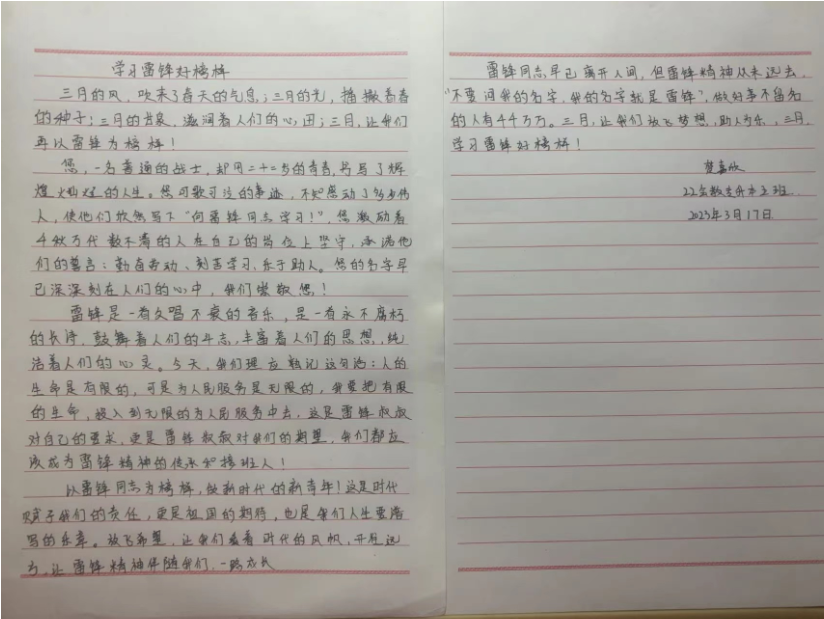 学习雷锋好榜样
三月的风，吹来了春天的气息；三月的光，播撒着春
的种子；三月的音泉，滋润着人们的心田；三月，让我们
再以雷锋为榜样！
您，一名普通的战士，却用二十二岁的青春，书写了辉
煌灿烂的人生。您可歌可泣的事迹，不知感动了多少伟
人，使他们欣然写下“向雷锋同志学习！”，您激励着
千秋万代数不清的人在自己的岗位上坚守，承诺他
们的誓言：勤奋劳动、刻苦学习、乐于助人。您的名字早
已深深刻在人们的心中，我们崇敬您！
雷锋是一首久唱不衰的音乐，是一首永不腐朽
的长诗，鼓舞着人们的斗志，丰富着人们的思想，纯
洁着人们的心灵。今天，我们理应熟记这句话：人的
生命是有限的，可是为人民服务是无限的，我要把有限
的生命，投入到无限的为人民服务中去，这是雷锋叔叔
对自己的要求，更是雷锋叔叔对我们的期望，我们都应
该成为雷锋精神的传承和接班人！
以雷锋同志为榜样，做新时代的新青年！这是时代
赋予我们的责任，更是祖国的期待，也是我们人生要谱
写的乐章。放飞希望，让我们乘着时代的风帆，开启远
方，让雷锋精神伴随我们，一路成长
雷锋同志早已离开人间，但雷锋精神从未远去，
“不要问我的名字，我的名字就是雷锋”，做好事不留名
的人有千千万万。三月，让我们放飞梦想，助人为乐，三月，
学习雷锋好榜样！
22会数专升本五班
2023年3月17日